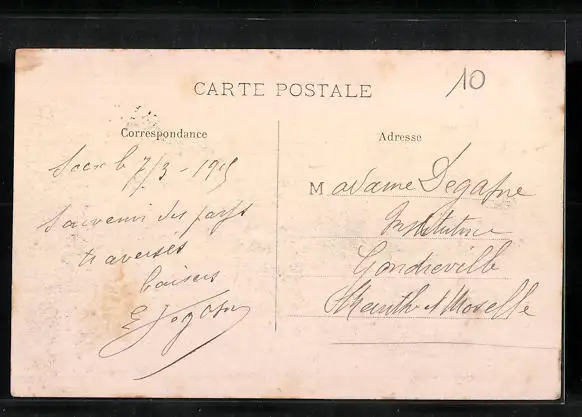 10
CARTE POSTALE
Correspondance
Adresse
le 7/3 - 1915
Souvenir des pays
traversés
baisers
Madame Degafne
Institutrice
Gondreville
Meurthe et Moselle